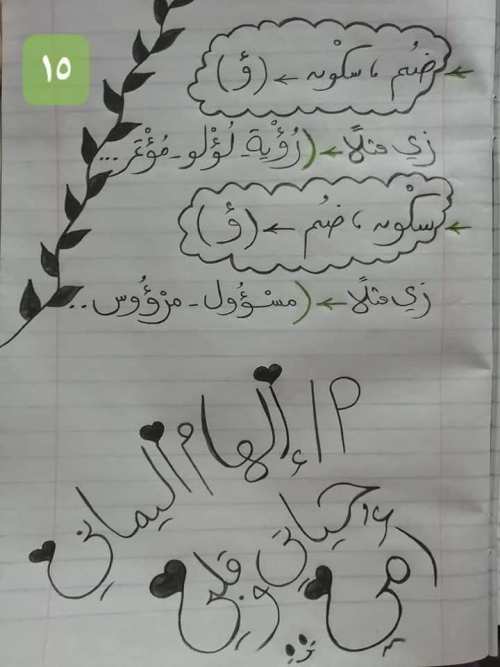 ١٥
ضُم ، سكوْن ← (ؤ)
زي مثلًا ← (رُؤْية - لُؤْلو - مُؤْتمر ...
سكوْن ، ضُم ← (ؤ)
زي مثلًا ← (مسْؤُول - مرْؤُوس ...
م ا إلهام اليماني
حياتي
أمي وقلبي